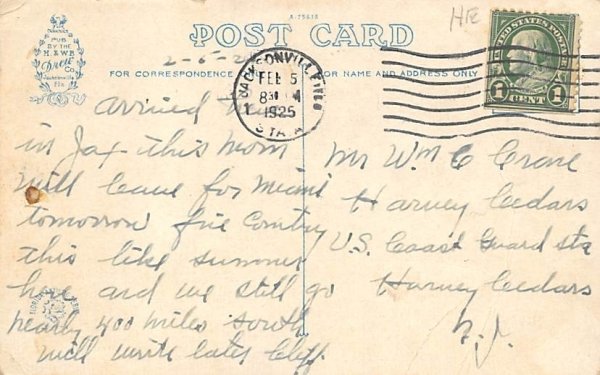 A-75618
POST CARD
PUB
BY THE
H. & W.B.
Drew
Co.
Jacksonville
Fla
FOR CORRESPONDENCE
FOR NAME AND ADDRESS ONLY
2-5-25
JACKSONVILLE
FEB 5
1925
STA A
UNITED STATES POSTAGE
1 CENT 1
Arrived
in Jax this morn
will leave for Miami
tomorrow fine Country
this like summer
here and we still go
nearly 400 miles south
will write later Cliff
Mr Wm C Crane
Harvey Cedars
U.S. Coast Guard sta
Harvey Cedars
N.J.